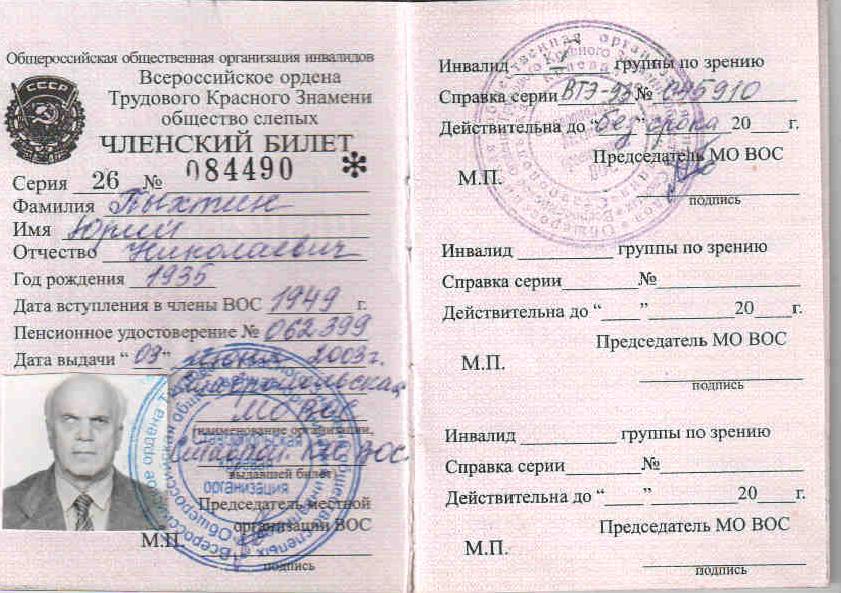 Общероссийская общественная организация инвалидов
Всероссийское ордена
Трудового Красного Знамени
общество слепых
СССР
ЧЛЕНСКИЙ БИЛЕТ
Серия 26 № 084490 *
Фамилия Пыхтин
Имя Юрий
Отчество Николаевич
Год рождения 1935
Дата вступления в члены ВОС 1949 г.
Пенсионное удостоверение № 062399
Дата выдачи “ 03 ” 2003 г.
Ставропольская
МО ВОС
наименование организации,
Ставроп. КО ВОС
выдавшей билет
Ставропольская
краевая
организация
Председатель местной
организации ВОС
М.П.
подпись
Инвалид I группы по зрению
Справка серии ВТЭ-93 № 045910
Действительна до “без срока 20 г.
Председатель МО ВОС
М.П.
подпись
Инвалид группы по зрению
Справка серии №
Действительна до “ ” 20 г.
Председатель МО ВОС
М.П.
подпись
Инвалид группы по зрению
Справка серии №
Действительна до “ ” 20 г.
Председатель МО ВОС
М.П.
подпись